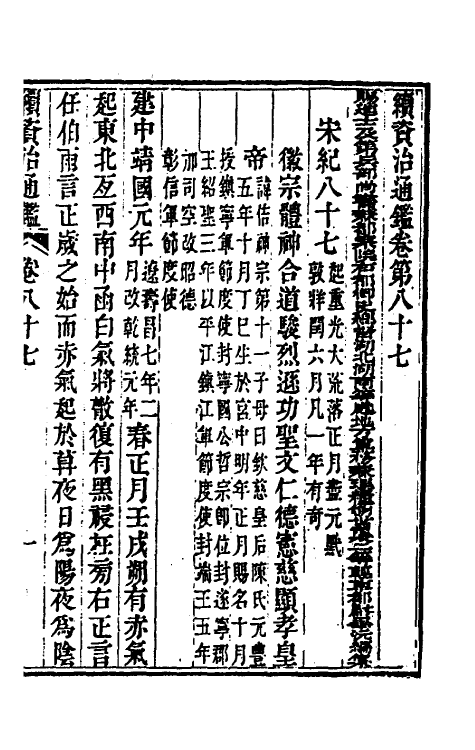 續資治通鑑卷第八十七
宋紀八十七起重光大荒落正月盡元黓
敦牂閏六月凡一年有奇
徽宗體神合道駿烈遜功聖文仁德憲慈顯孝皇
帝諱佶神宗第十一子母曰欽慈皇后陳氏元豐
五年十月丁巳生於宮中明年正月賜名十月
授鎮寧軍節度使封寧國公哲宗即位封遂寧郡
王紹聖三年以平江鎮江軍節度使封端王五年
加司空改昭德
彰信軍節度使
建中靖國元年遼壽昌七年二
月改乾統元年春正月壬戌朔有赤氣
起東北亙西南中函白氣將散復有黑祲在旁右正言
任伯雨言正歲之始而赤氣起於暮夜日為陽夜為陰
續資治通鑑 卷八十七 一